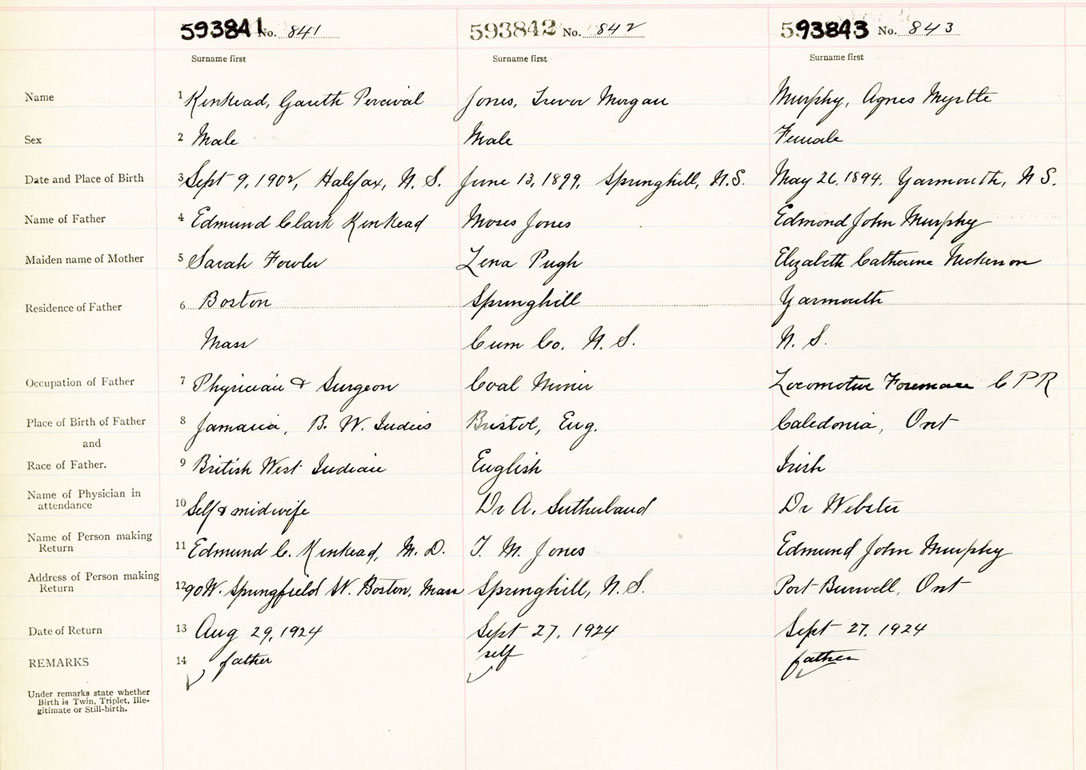 593841 No. 841 593842 No. 842 593843 No. 843
Surname first Surname first Surname first
Name 1 Kinkead, Gareth Percival Jones, Trevor Morgan Murphy, Agnes Myrtle
Sex 2 Male Male Female
Date and Place of Birth 3 Sept 9, 1902, Halifax, N. S. June 13, 1899, Springhill, N.S. May 26, 1894. Yarmouth, N S.
Name of Father 4 Edmund Clark Kinkead Moses Jones Edmond John Murphy
Maiden name of Mother 5 Sarah Fowler Lena Pugh Elizabeth Catherine Nickerson
Residence of Father 6 Boston Springhill Yarmouth
Mass Cum Co. N. S. N. S.
Occupation of Father 7 Physician & Surgeon Coal Miner Locomotive Foreman C P R
Place of Birth of Father 8 Jamaica, B. W. Indies Bristol, Eng. Caledonia, Ont
and
Race of Father. 9 British West Indian English Irish
Name of Physician in
attendance 10 Self & midwife Dr A. Sutherland Dr Webster
Name of Person making
Return 11 Edmund C. Kinkead, M. D. T. M. Jones Edmund John Murphy
Address of Person making
Return 12 90 W. Springfield St. Boston, Mass Springhill, N. S. Port Burwell, Ont
Date of Return 13 Aug 29, 1924 Sept 27, 1924 Sept 27, 1924
REMARKS 14 father self father
Under remarks state whether
Birth is Twin, Triplet, Ille-
gitimate or Still-birth.